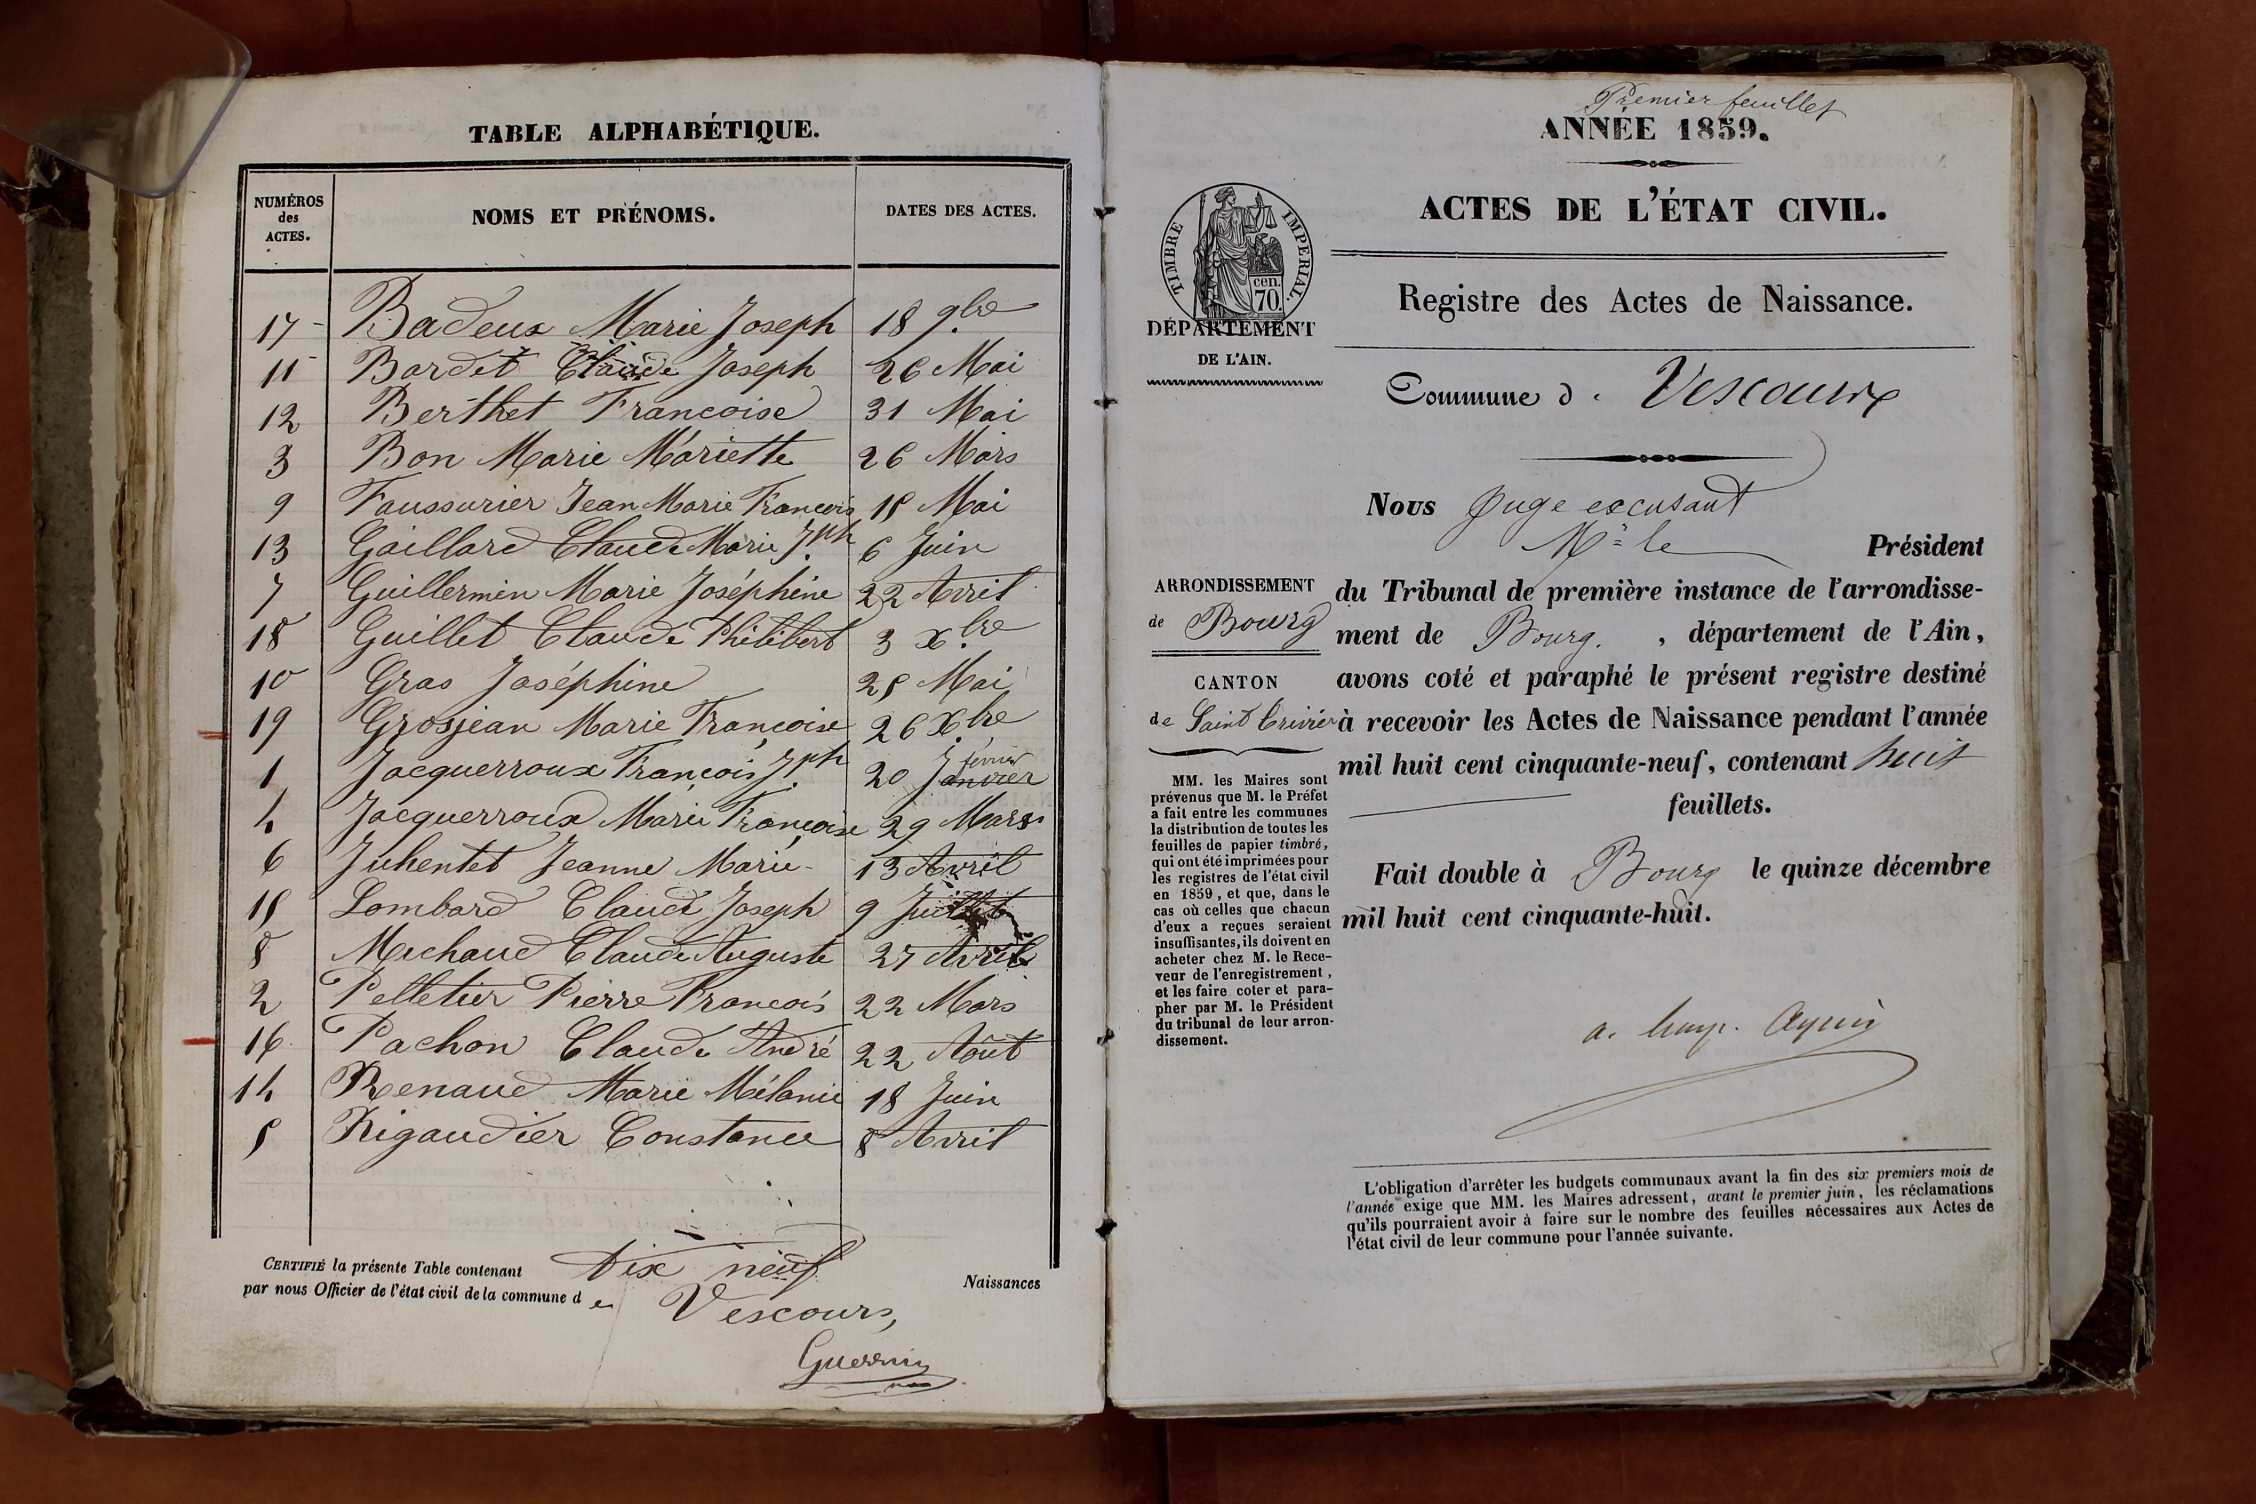 TABLE ALPHABÉTIQUE.
NUMÉROS des ACTES. NOMS ET PRÉNOMS. DATES DES ACTES.
17 Badeux Marie Joseph 18 9bre
11 Bardet Claude Joseph 26 Mai
12 Berthet Francoise 31 Mai
3 Bon Marie Mariette 26 Mars
9 Faussurier Jean Marie Francois 15 Mai
13 Gaillard Claude Marie Jph 6 Juin
7 Guillermin Marie Joséphine 22 Avril
18 Guillet Claude Philibert 3 Xbre
10 Gras Joséphine 25 Mai
19 Grosjean Marie Françoise 26 Xbre
1 Jacquerroux François Jph 20 Janvier février
4 Jacquerroux Marie Françoise 29 Mars
6 Juhentet Jeanne Marie 13 Avril
15 Lombard Claude Joseph 9 Juillet
8 Michaud Claude Auguste 27 Avril
2 Pelletier Pierre François 22 Mars
16 Pachon Claude André 22 Août
14 Renaud Marie Mélanie 18 Juin
5 Rigaudier Constance 8 Avril
CERTIFIÉ la présente Table contenant Dix neuf Naissances
par nous Officier de l'état civil de la commune de Vescours,
Premier feuillet
ANNÉE 1859.
TIMBRE IMPERIAL.
cen.
70
DÉPARTEMENT
DE L'AIN.
ACTES DE L'ÉTAT CIVIL.
Registre des Actes de Naissance.
Commune d. Vescours
Nous Juge excusant
Mr le Président
ARRONDISSEMENT
de Bourg
CANTON
de Saint Trivier
du Tribunal de première instance de l'arrondisse-
ment de Bourg. , département de l'Ain,
avons coté et paraphé le présent registre destiné
à recevoir les Actes de Naissance pendant l'année
mil huit cent cinquante-neuf, contenant huit
feuillets.
MM. les Maires sont
prévenus que M. le Préfet
a fait entre les communes
la distribution de toutes les
feuilles de papier timbré,
qui ont été imprimées pour
les registres de l'état civil
en 1859, et que, dans le
cas où celles que chacun
d'eux a reçues seraient
insuffisantes, ils doivent en
acheter chez M. le Rece-
veur de l'enregistrement,
et les faire coter et para-
pher par M. le Président
du tribunal de leur arron-
dissement.
Fait double à Bourg le quinze décembre
mil huit cent cinquante-huit.
L'obligation d'arrêter les budgets communaux avant la fin des six premiers mois de
l'année exige que MM. les Maires adressent, avant le premier juin, les réclamations
qu'ils pourraient avoir à faire sur le nombre des feuilles nécessaires aux Actes de
l'état civil de leur commune pour l'année suivante.